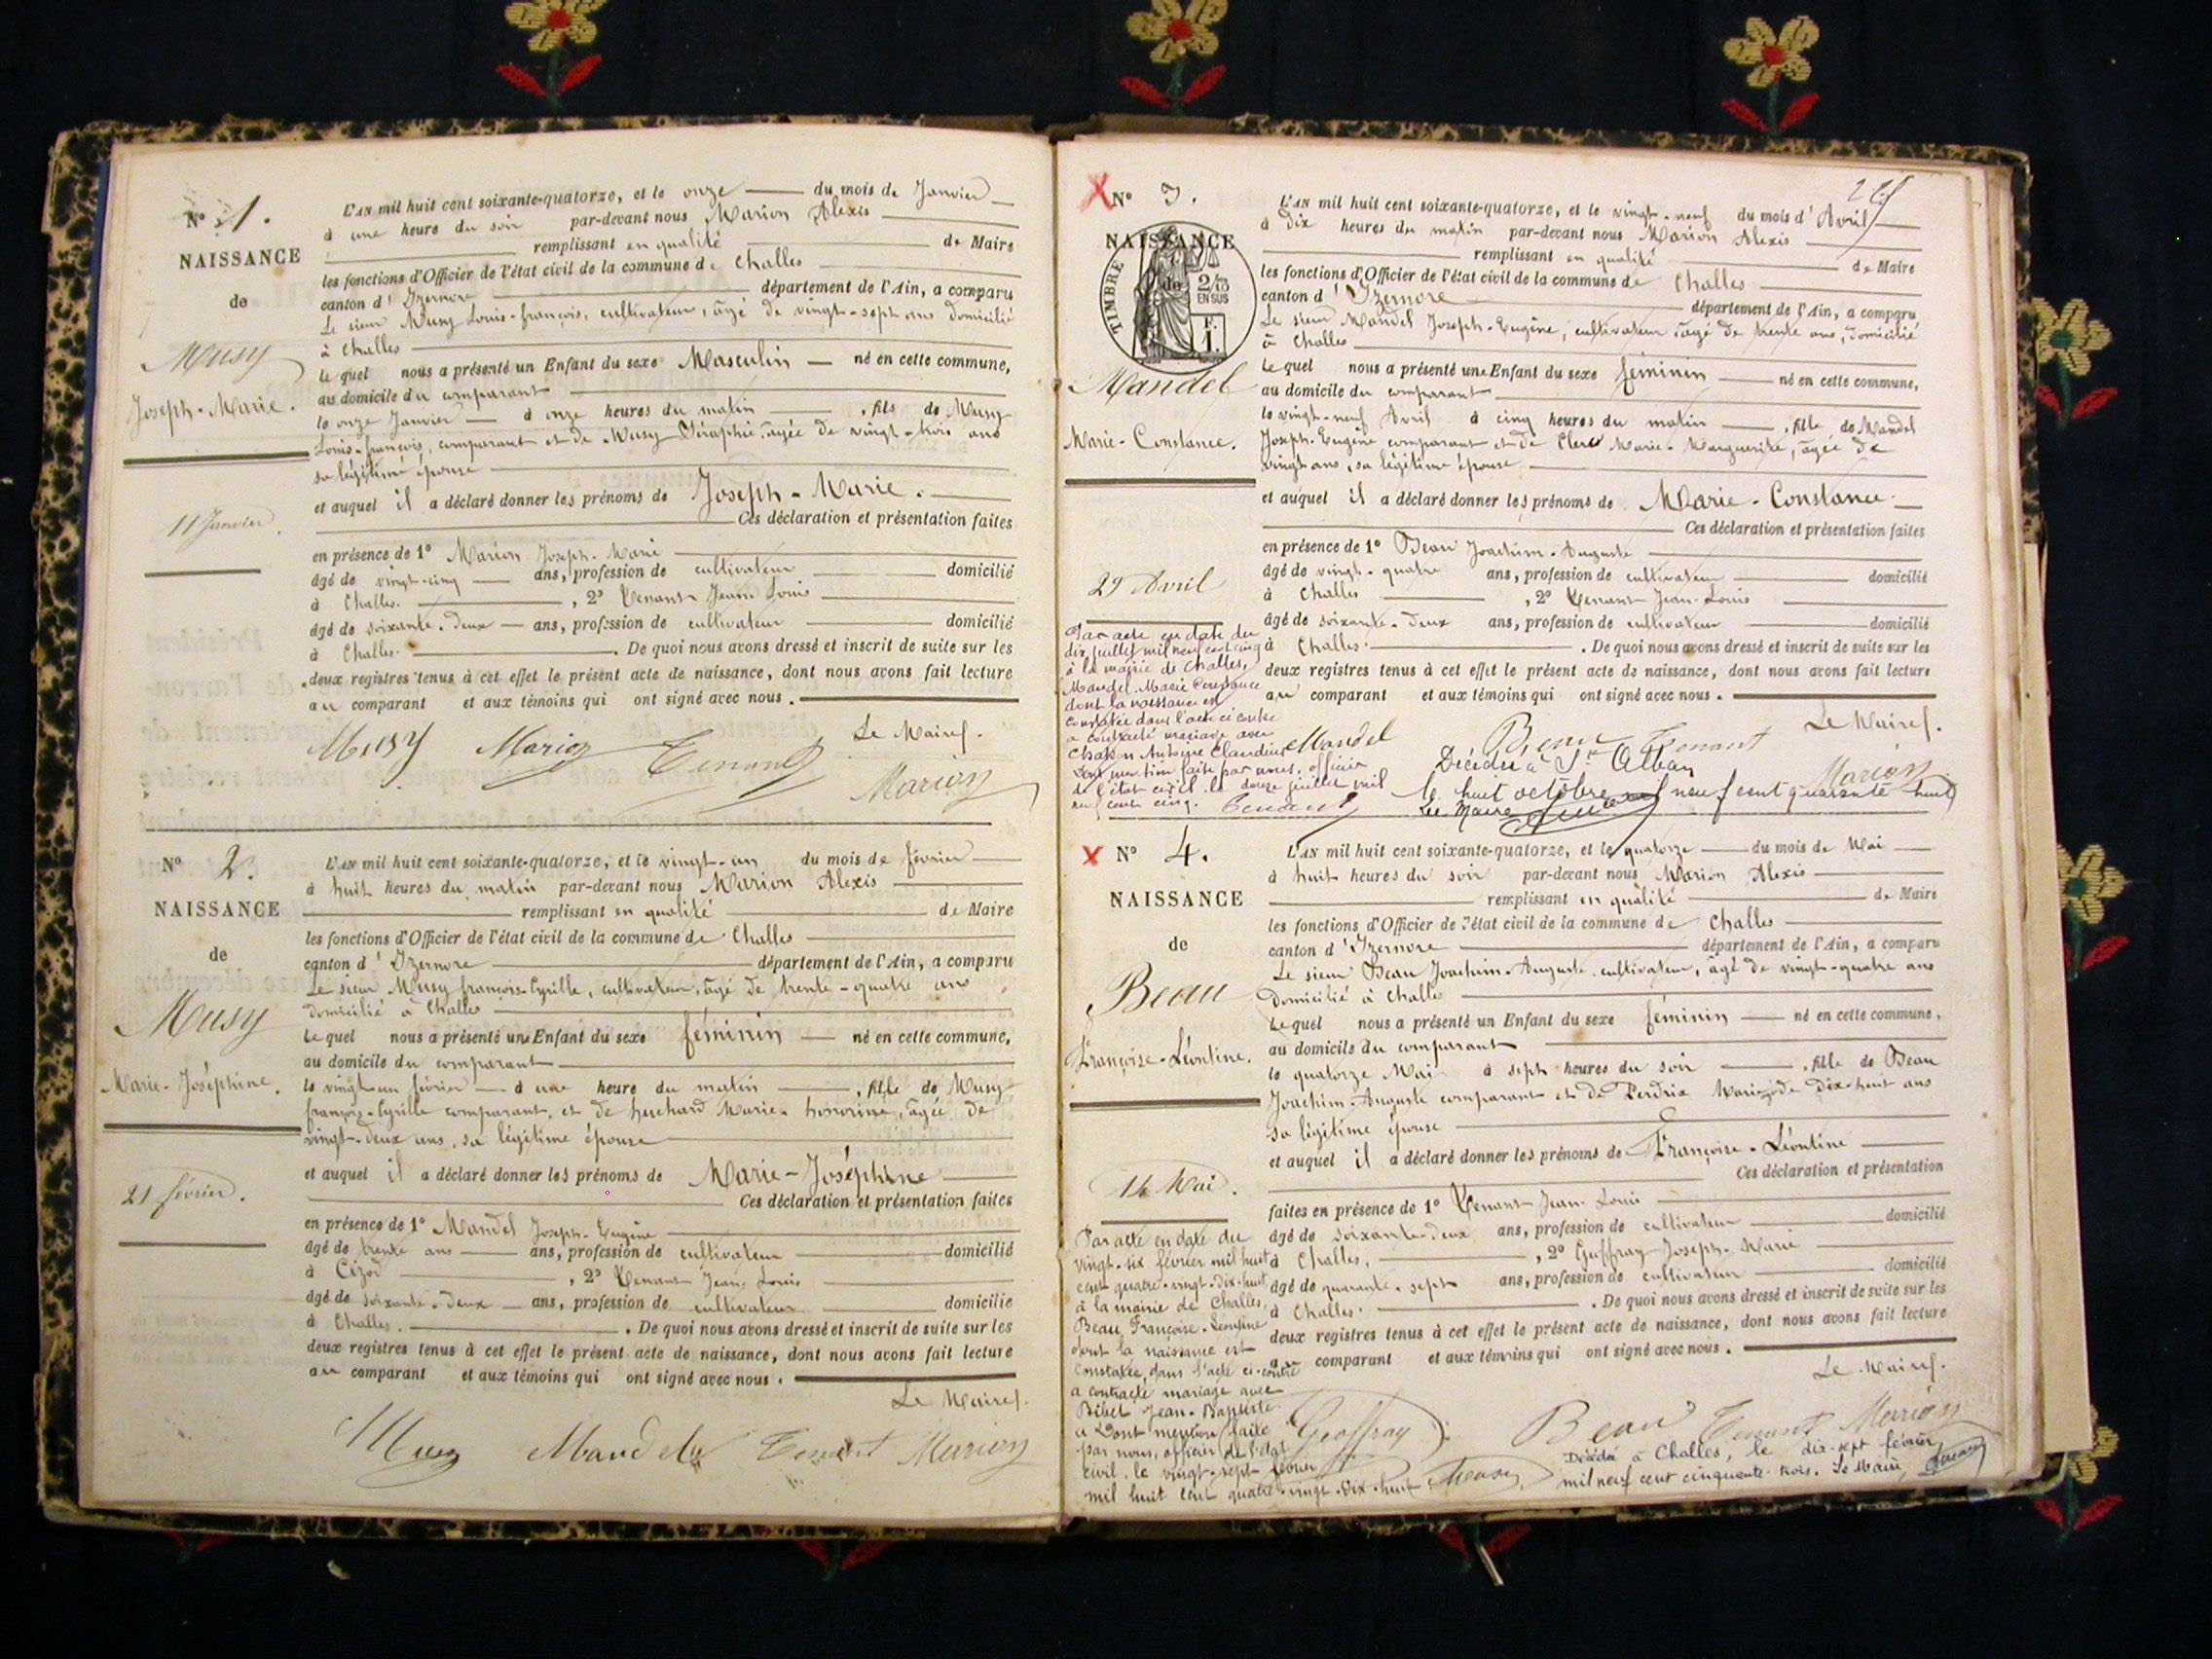 N° 1.
NAISSANCE
de
Musy
Joseph-Marie.
11 Janvier.
L'AN mil huit cent soixante-quatorze, et le onze du mois de Janvier
à une heure du soir par-devant nous Marion Alexis
remplissant en qualité de Maire
les fonctions d'Officier de l'état civil de la commune de Challes
canton d'Izernore département de l'Ain, a comparu
Le sieur Musy Louis-françois, cultivateur, âgé de vingt-sept ans domicilié
à Challes
lequel nous a présenté un Enfant du sexe Masculin né en cette commune,
au domicile du comparant
le onze Janvier à onze heures du matin, fils de Musy
Louis-françois, comparant et de Musy Séraphie, âgée de vingt-trois ans
sa légitime épouse
et auquel il a déclaré donner les prénoms de Joseph-Marie.
Ces déclaration et présentation faites
en présence de 1° Marion Joseph-Marie
âgé de vingt-cinq ans, profession de cultivateur domicilié
à Challes., 2° Tenant Jean-Louis
âgé de soixante-deux ans, profession de cultivateur domicilié
à Challes. De quoi nous avons dressé et inscrit de suite sur les
deux registres tenus à cet effet le présent acte de naissance, dont nous avons fait lecture
au comparant et aux témoins qui ont signé avec nous.
Le Maire
Musy Marion Tenant
Marion
N° 2.
NAISSANCE
de
Musy
Marie-Joséphine.
21 février.
L'AN mil huit cent soixante-quatorze, et le vingt-un du mois de février
à huit heures du matin par-devant nous Marion Alexis
remplissant en qualité de Maire
les fonctions d'Officier de l'état civil de la commune de Challes
canton d'Izernore département de l'Ain, a comparu
Le sieur Musy françois-Cyrille, cultivateur, âgé de trente-quatre ans
domicilié à Challes
lequel nous a présenté une Enfant du sexe féminin né en cette commune,
au domicile du comparant
le vingt-un février à une heure du matin, fille de Musy
françois-Cyrille comparant, et de Marie-honorine, âgée de
vingt-deux ans, sa légitime épouse
et auquel il a déclaré donner les prénoms de Marie-Joséphine
Ces déclaration et présentation faites
en présence de 1° Mandel Joseph-Eugène
âgé de trente ans ans, profession de cultivateur domicilié
à Cizod, 2° Tenant Jean-Louis
âgé de soixante-deux ans, profession de cultivateur domicilié
à Challes. De quoi nous avons dressé et inscrit de suite sur les
deux registres tenus à cet effet le présent acte de naissance, dont nous avons fait lecture
au comparant et aux témoins qui ont signé avec nous.
Le Maire
Musy Mandel Tenant Marion
X N° 3.
NAISSANCE
de
TIMBRE
2/10
EN SUS
F.
1.
Mandel
Marie-Constance.
29 Avril
L'AN mil huit cent soixante-quatorze, et le vingt-neuf du mois d'Avril
à dix heures du matin par-devant nous Marion Alexis
remplissant en qualité de Maire
les fonctions d'Officier de l'état civil de la commune de Challes
canton d'Izernore département de l'Ain, a comparu
Le sieur Mandel Joseph-Eugène, cultivateur âgé de trente ans, domicilié
à Challes
lequel nous a présenté une Enfant du sexe féminin né en cette commune,
au domicile du comparant
le vingt-neuf Avril à cinq heures du matin, fille de Mandel
Joseph-Eugène comparant et de Clerc Marie-Marguerite, âgée de
vingt ans, sa légitime épouse
et auquel il a déclaré donner les prénoms de Marie-Constance.
Ces déclaration et présentation faites
en présence de 1° Beau Joachim-Auguste
âgé de vingt-quatre ans, profession de cultivateur domicilié
à Challes, 2° Tenant Jean-Louis
âgé de soixante-deux ans, profession de cultivateur domicilié
à Challes. De quoi nous avons dressé et inscrit de suite sur les
deux registres tenus à cet effet le présent acte de naissance, dont nous avons fait lecture
au comparant et aux témoins qui ont signé avec nous.
Le Maire
Mandel Beau Tenant
Marion
Par acte en date du
dix juillet mil neuf cent cinq
à la mairie de Challes,
Mandel Marie Constance
dont la naissance est
constatée dans l'acte ci contre
a contracté mariage avec
Antoine Claudius
Dont mention faite par nous, officier
de l'état civil le douze juillet mil
neuf cent cinq. Tenant
Décédée à St Alban
le huit octobre mil neuf cent quarante huit
Le Maire
X N° 4.
NAISSANCE
de
Beau
Françoise-Léontine.
14 Mai.
L'AN mil huit cent soixante-quatorze, et le quatorze du mois de Mai
à huit heures du soir par-devant nous Marion Alexis
remplissant en qualité de Maire
les fonctions d'Officier de l'état civil de la commune de Challes
canton d'Izernore département de l'Ain, a comparu
Le sieur Beau Joachim-Auguste, cultivateur, âgé de vingt-quatre ans
domicilié à Challes
lequel nous a présenté un Enfant du sexe féminin né en cette commune,
au domicile du comparant
le quatorze Mai à sept heures du soir, fille de Beau
Joachim-Auguste comparant et de Perdrix Marie, âgée de dix-huit ans
sa légitime épouse
et auquel il a déclaré donner les prénoms de Françoise-Léontine
Ces déclaration et présentation
faites en présence de 1° Tenant Jean-Louis
âgé de soixante-deux ans, profession de cultivateur domicilié
à Challes, 2° Geoffray Joseph-Marie
âgé de quarante-sept ans, profession de cultivateur domicilié
à Challes. De quoi nous avons dressé et inscrit de suite sur les
deux registres tenus à cet effet le présent acte de naissance, dont nous avons fait lecture
au comparant et aux témoins qui ont signé avec nous.
Le Maire
Geoffray Beau Tenant Marion
Par acte en date du
vingt-six février mil huit
cent quatre-vingt-dix-huit
à la mairie de Challes,
Beau Françoise-Léontine
dont la naissance est
constatée dans l'acte ci-contre
a contracté mariage avec
Bibet Jean-Baptiste
Dont mention faite
par nous, officier de l'état
civil, le vingt-sept février
mil huit cent quatre-vingt-dix-huit Musy
Décédée à Challes, le dix-sept février
mil neuf cent cinquante-trois. Le Maire,